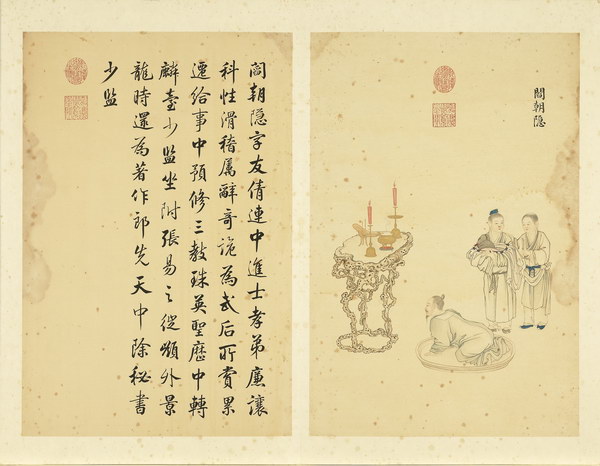 閻朝隐
閻朝隐字友倩連中進士孝弟廉讓
科性滑稽屬辭奇詭為武后所賞累
遷給事中預修三教珠英聖歷中轉
麟臺少監坐附張易之徙嶺外景
龍時還為著作郎先天中除秘書
少監